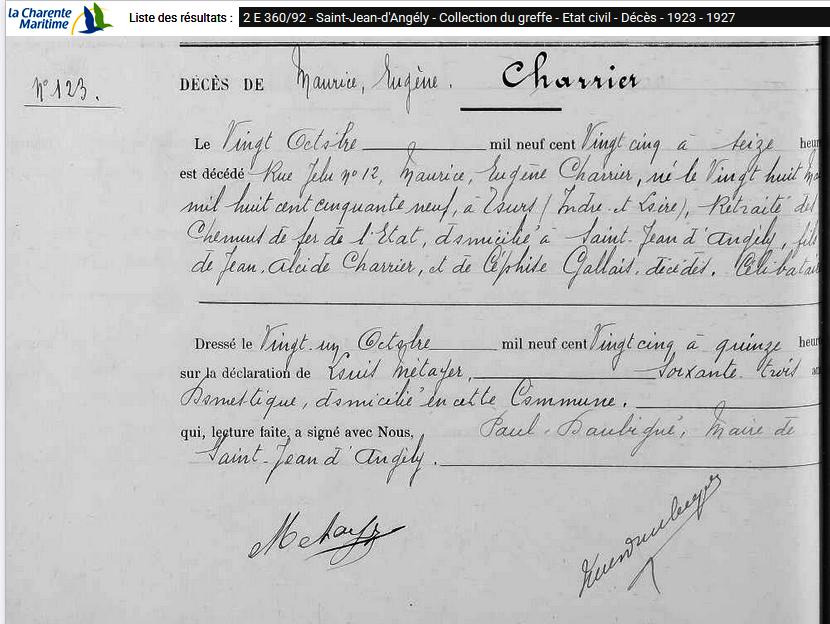 la Charente
Maritime
Liste des résultats : 2 E 360/92 - Saint-Jean-d'Angély - Collection du greffe - Etat civil - Décès - 1923 - 1927
N° 123.
DÉCÈS DE Maurice, Eugène. Charrier
Le Vingt Octobre mil neuf cent Vingt cinq à seize heur
est décédé Rue Jélu n° 12, Maurice, Eugène Charrier, né le Vingt huit Ma
mil huit cent cinquante neuf, à Tours (Indre et Loire), Retraité des
Chemins de fer de l'Etat, domicilié à Saint-Jean d'Angély, fils
de Jean-Alcide Charrier, et de Céphise Gallais, décédés. Célibatair
Dressé le Vingt-un Octobre mil neuf cent Vingt cinq à quinze heur
sur la déclaration de Louis Métayer, Soixante trois an
Domestique, domicilié en cette Commune.
qui, lecture faite, a signé avec Nous, Paul Daubigné, Maire de
Saint-Jean d'Angély.
Metayer